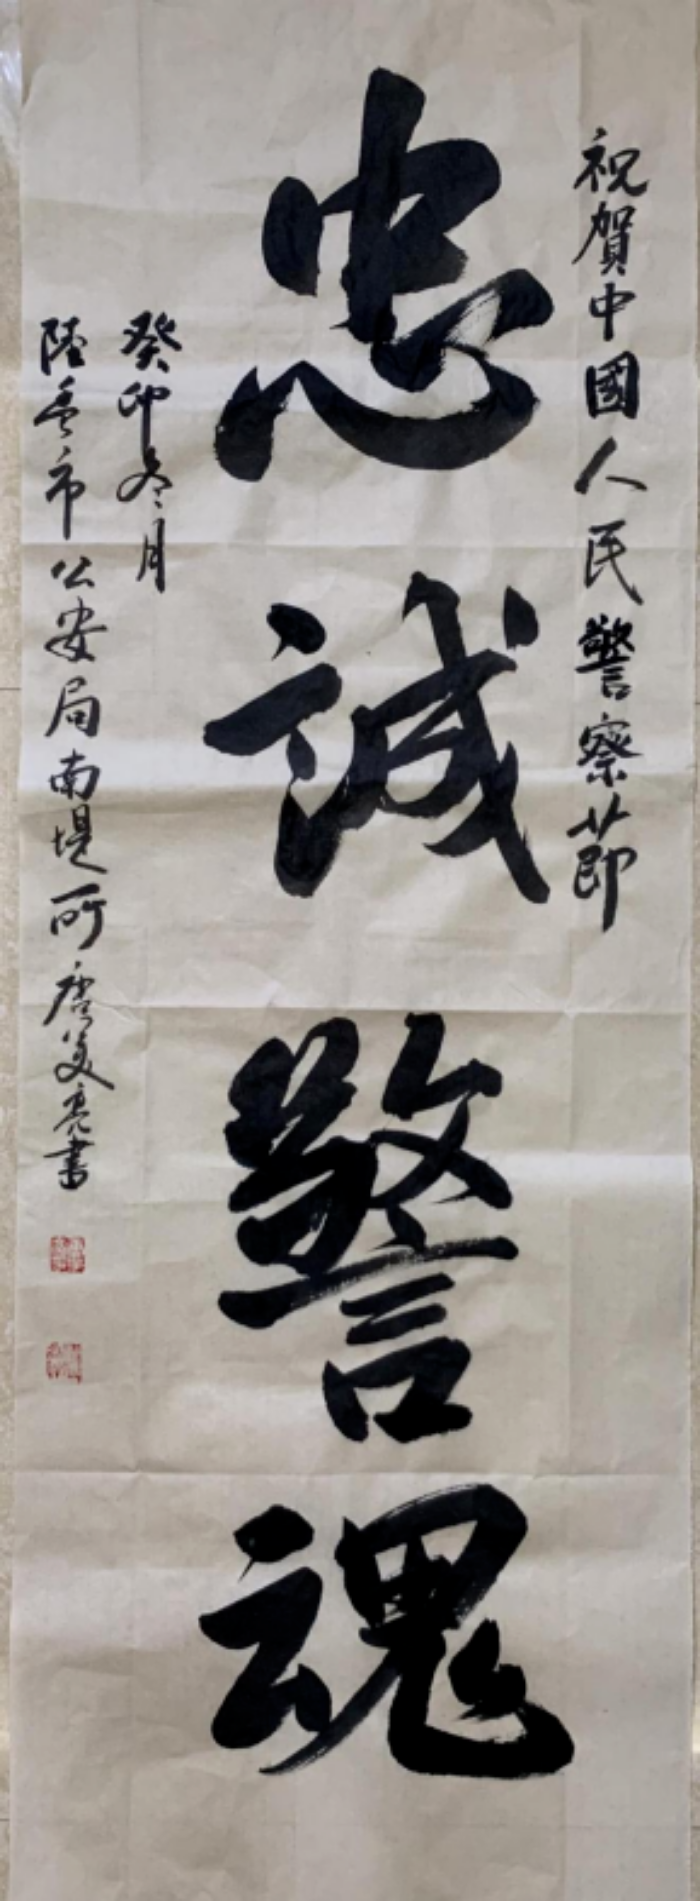 祝賀中國人民警察節
忠誠警魂
癸卯冬月
陸豐市公安局南堤所唐美亮書